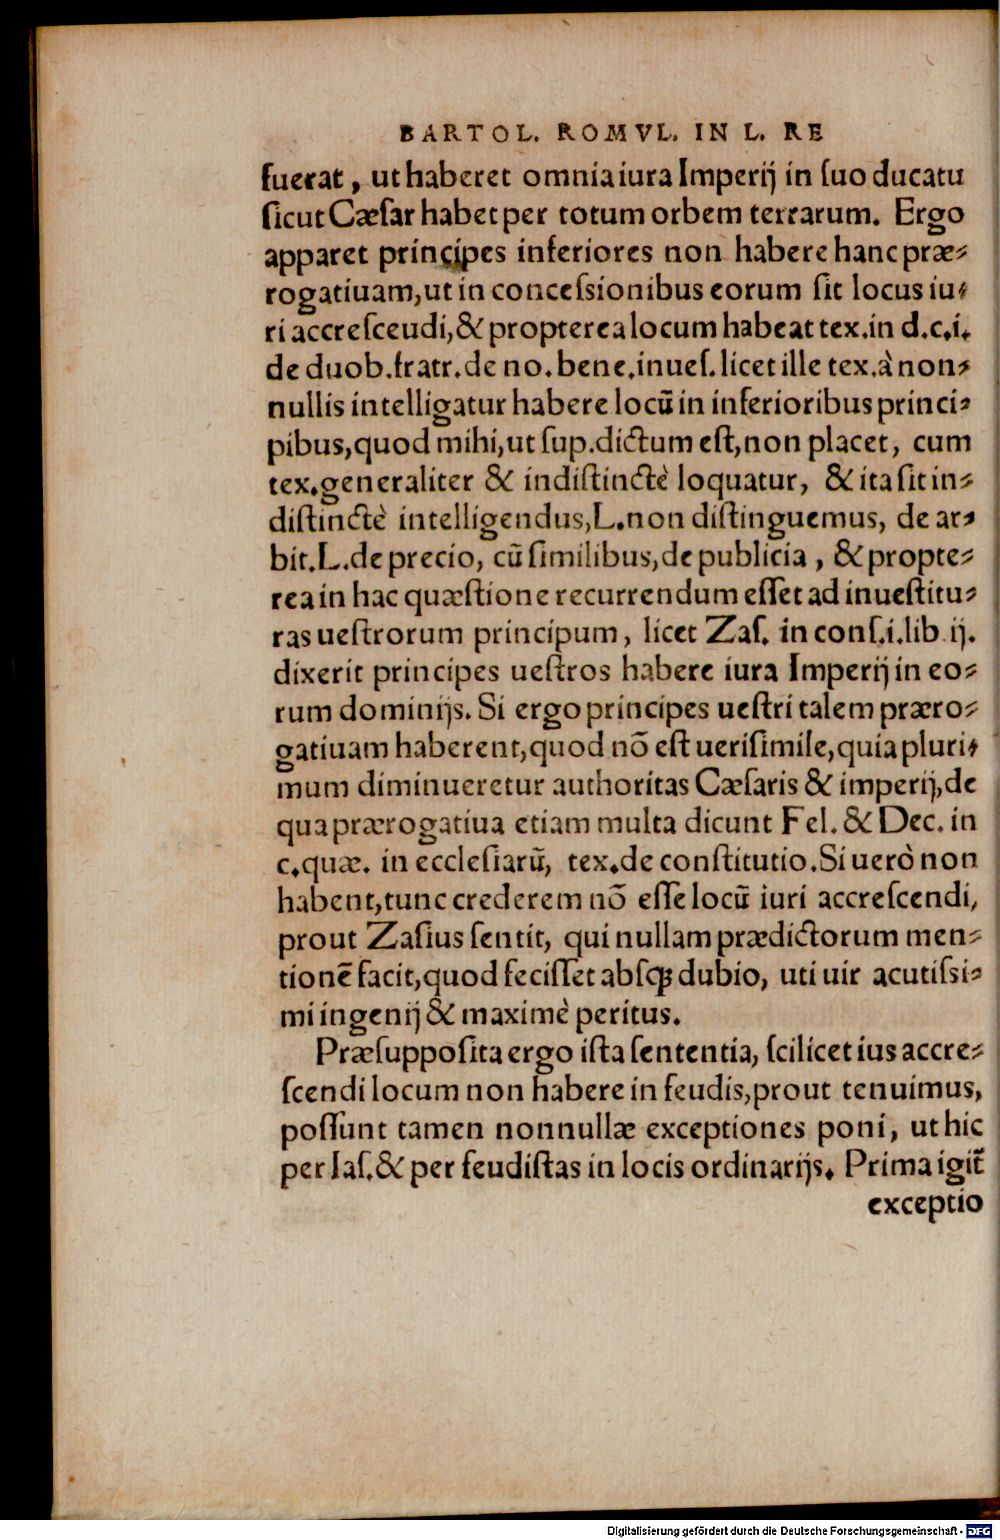 BARTOL. ROMVL. IN L. RE
fuerat, ut haberet omnia iura Imperij in ſuo ducatu
ſicut Cæſar habet per totum orbem terrarum. Ergo
apparet principes inferiores non habere hanc præ-
rogatiuam, ut in conceſsionibus eorum ſit locus iu-
ri accreſceudi, & propterea locum habeat tex. in d.c.i.
de duob. fratr. de no. bene. inueſ. licet ille tex. à non-
nullis intelligatur habere locū in inferioribus princi-
pibus, quod mihi, ut ſup. dictum eſt, non placet, cum
tex. generaliter & indiſtinctè loquatur, & ita ſit in-
diſtinctè intelligendus, L. non diſtinguemus, de ar-
bit. L. de precio, cū ſimilibus, de publicia, & propte-
rea in hac quæſtione recurrendum eſſet ad inueſtitu-
ras ueſtrorum principum, licet Zaſ. in conſ.i.lib ij.
dixerit principes ueſtros habere iura Imperij in eo-
rum dominijs. Si ergo principes ueſtri talem præro-
gatiuam haberent, quod nō eſt ueriſimile, quia pluri-
mum diminueretur authoritas Cæſaris & imperij, de
qua prærogatiua etiam multa dicunt Fel. & Dec. in
c. quæ. in eccleſiarū, tex. de conſtitutio. Si uerò non
habent, tunc crederem nō eſſe locū iuri accreſcendi,
prout Zaſius ſentit, qui nullam prædictorum men-
tionē facit, quod feciſſet abſqꝫ dubio, uti uir acutiſsi-
mi ingenij & maximè peritus.
Præſuppoſita ergo iſta ſententia, ſcilicet ius accre-
ſcendi locum non habere in feudis, prout tenuimus,
poſſunt tamen nonnullæ exceptiones poni, ut hic
per Iaſ. & per feudiſtas in locis ordinarijs. Prima igit̃
exceptio
Digitalisierung gefördert durch die Deutsche Forschungsgemeinschaft - DFG